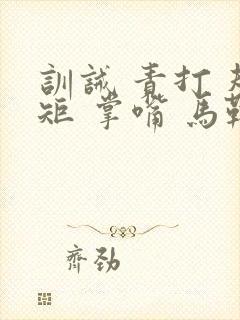 訓誡 責打 規
矩 掌嘴 馬鞭
齊勁